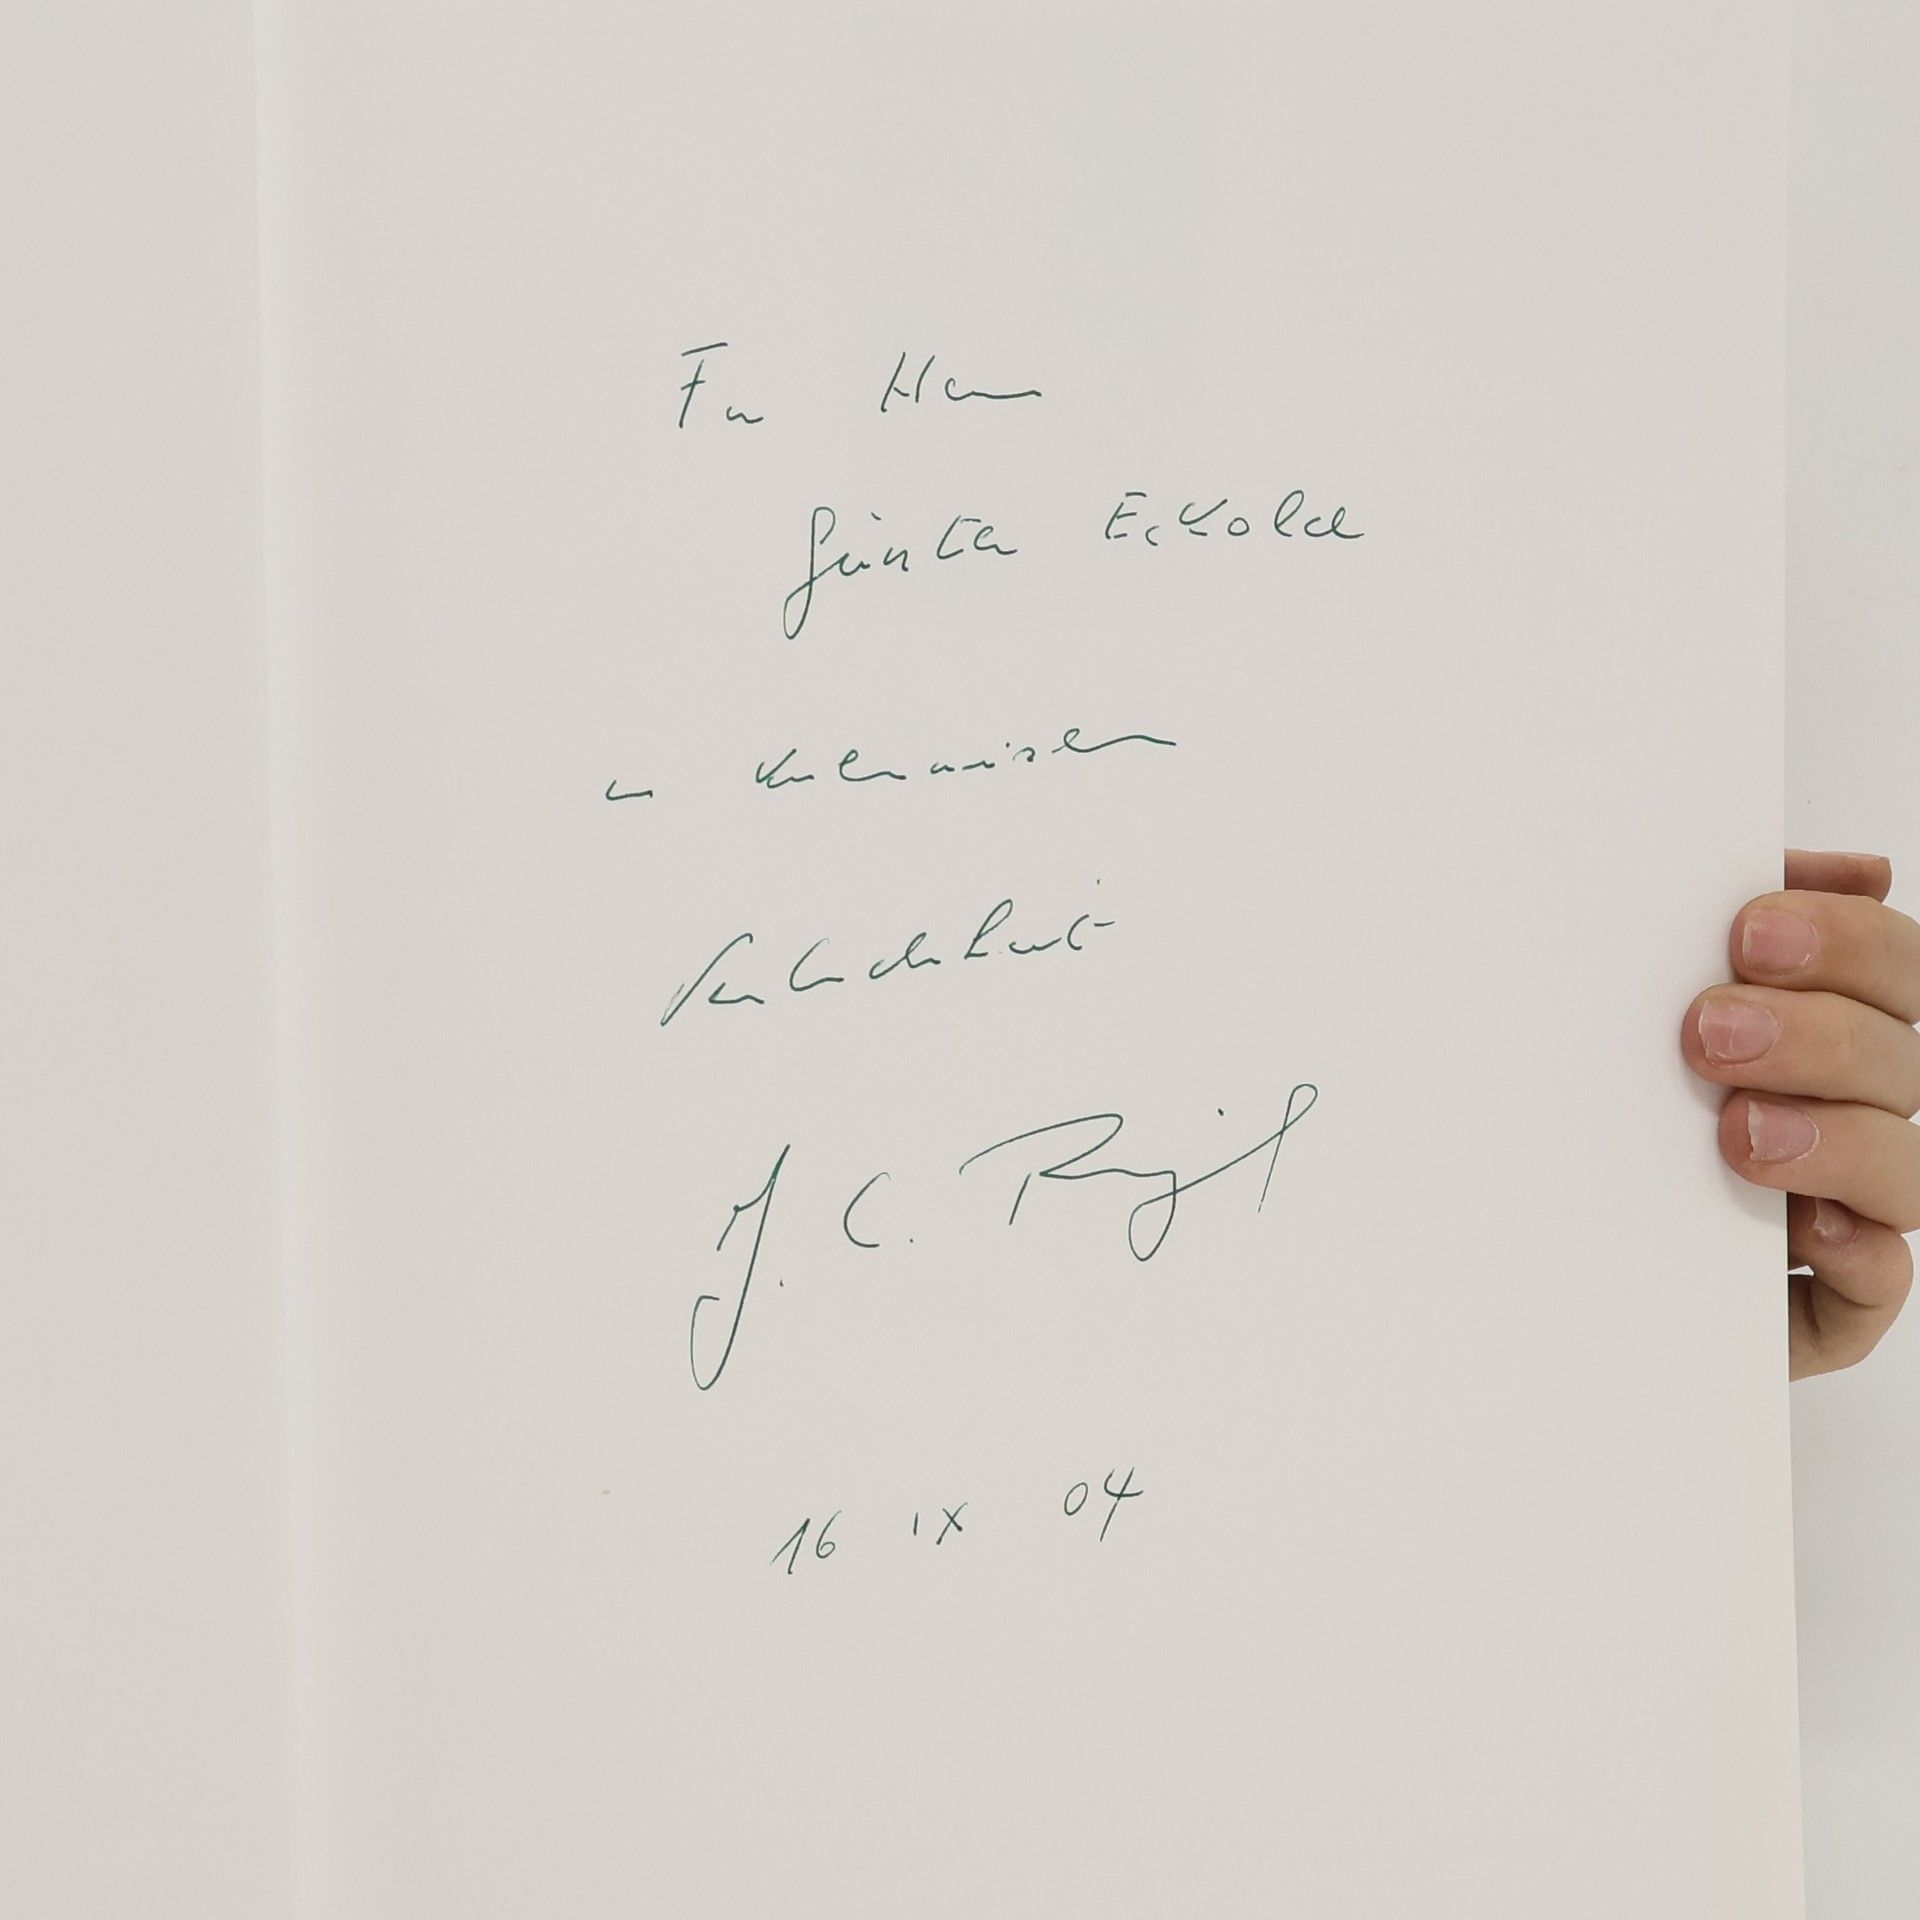 Für Herrn
Günter Eckold
in kulinarischer
Verbundenheit
J. C.
16 IX 04